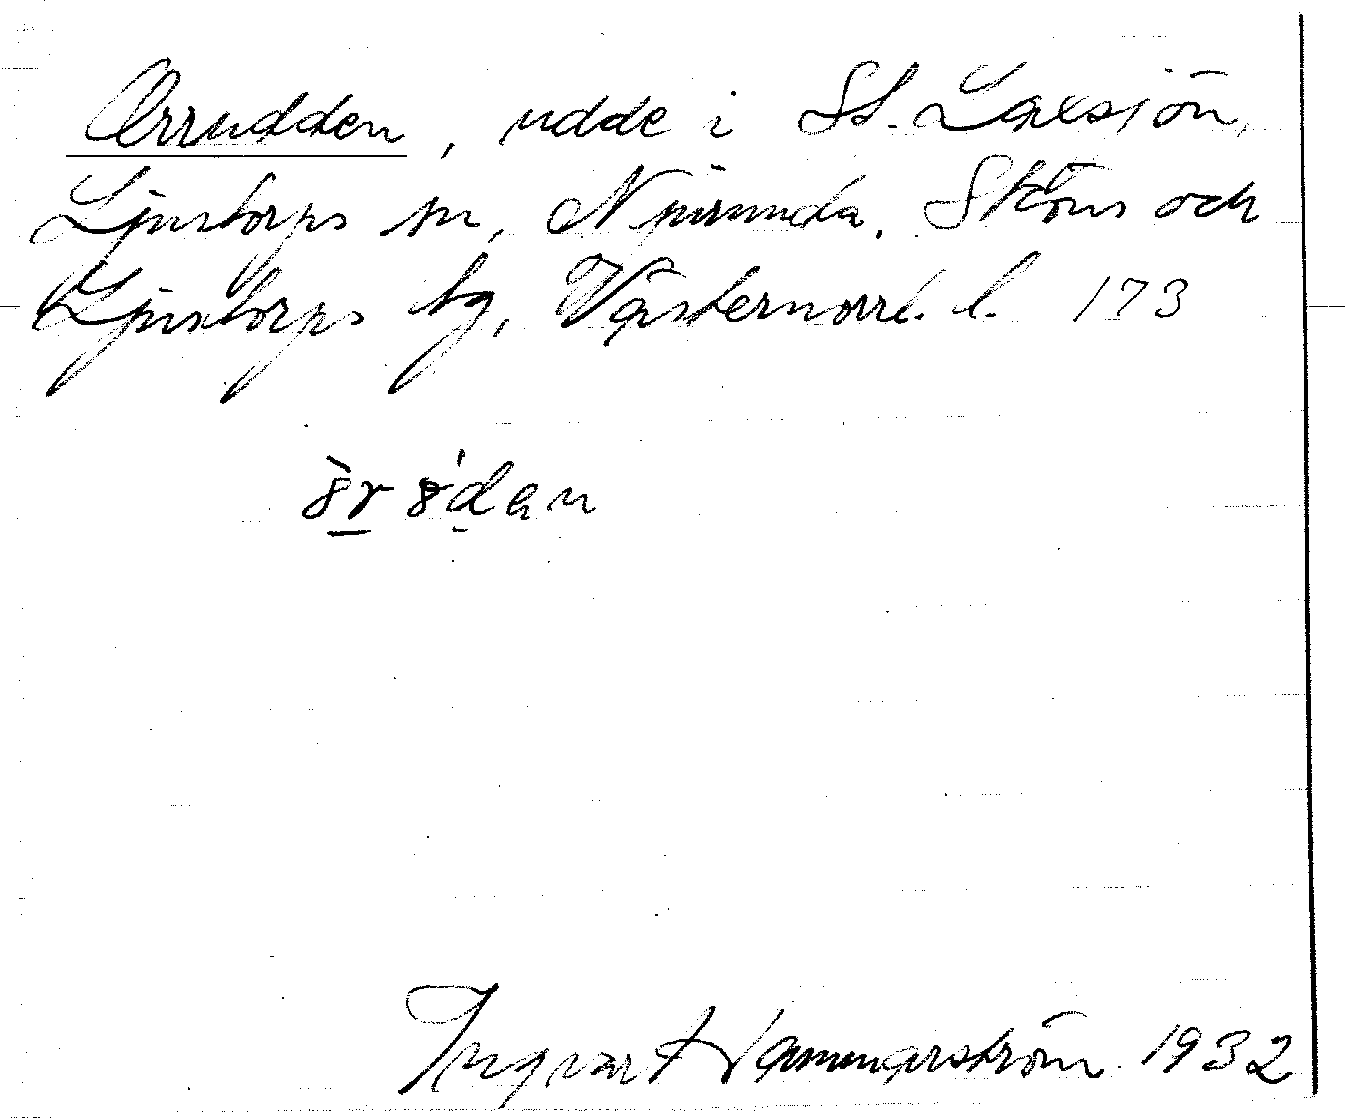 Orrudden, udde i St. Laxsjön,
Ljustorps sn, Njurunda, Sköns och
Ljustorps tg, Västernorrl. l. 173
Ingvar Hammarström 1932